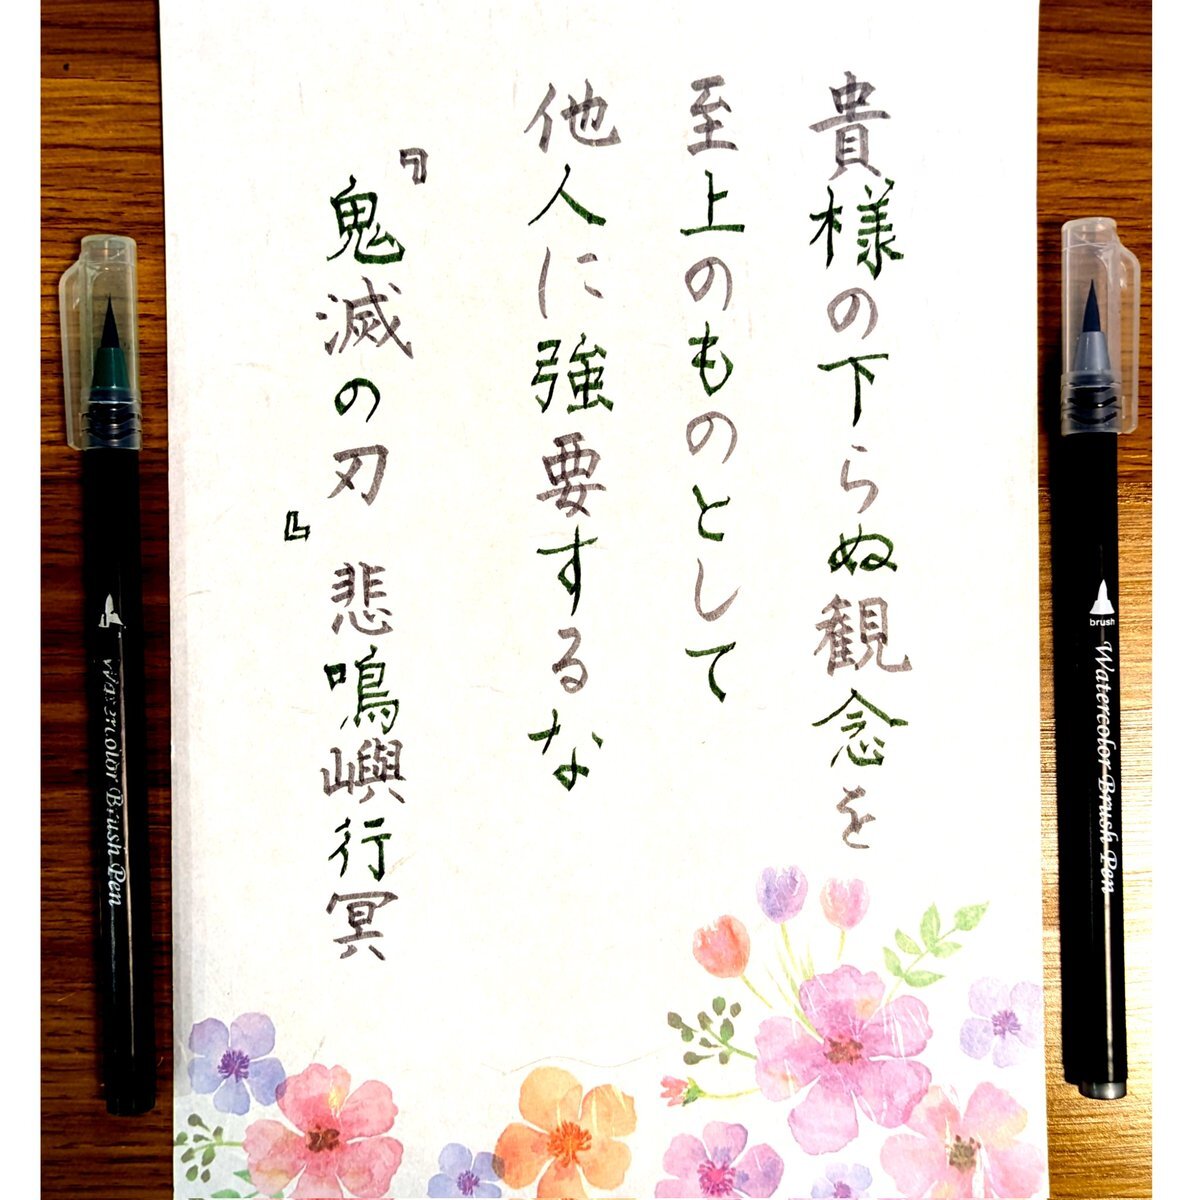 貴様の下らぬ観念を
至上のものとして
他人に強要するな
『鬼滅の刃』悲鳴嶼行冥
Watercolor Brush Pen
brush
Watercolor Brush Pen